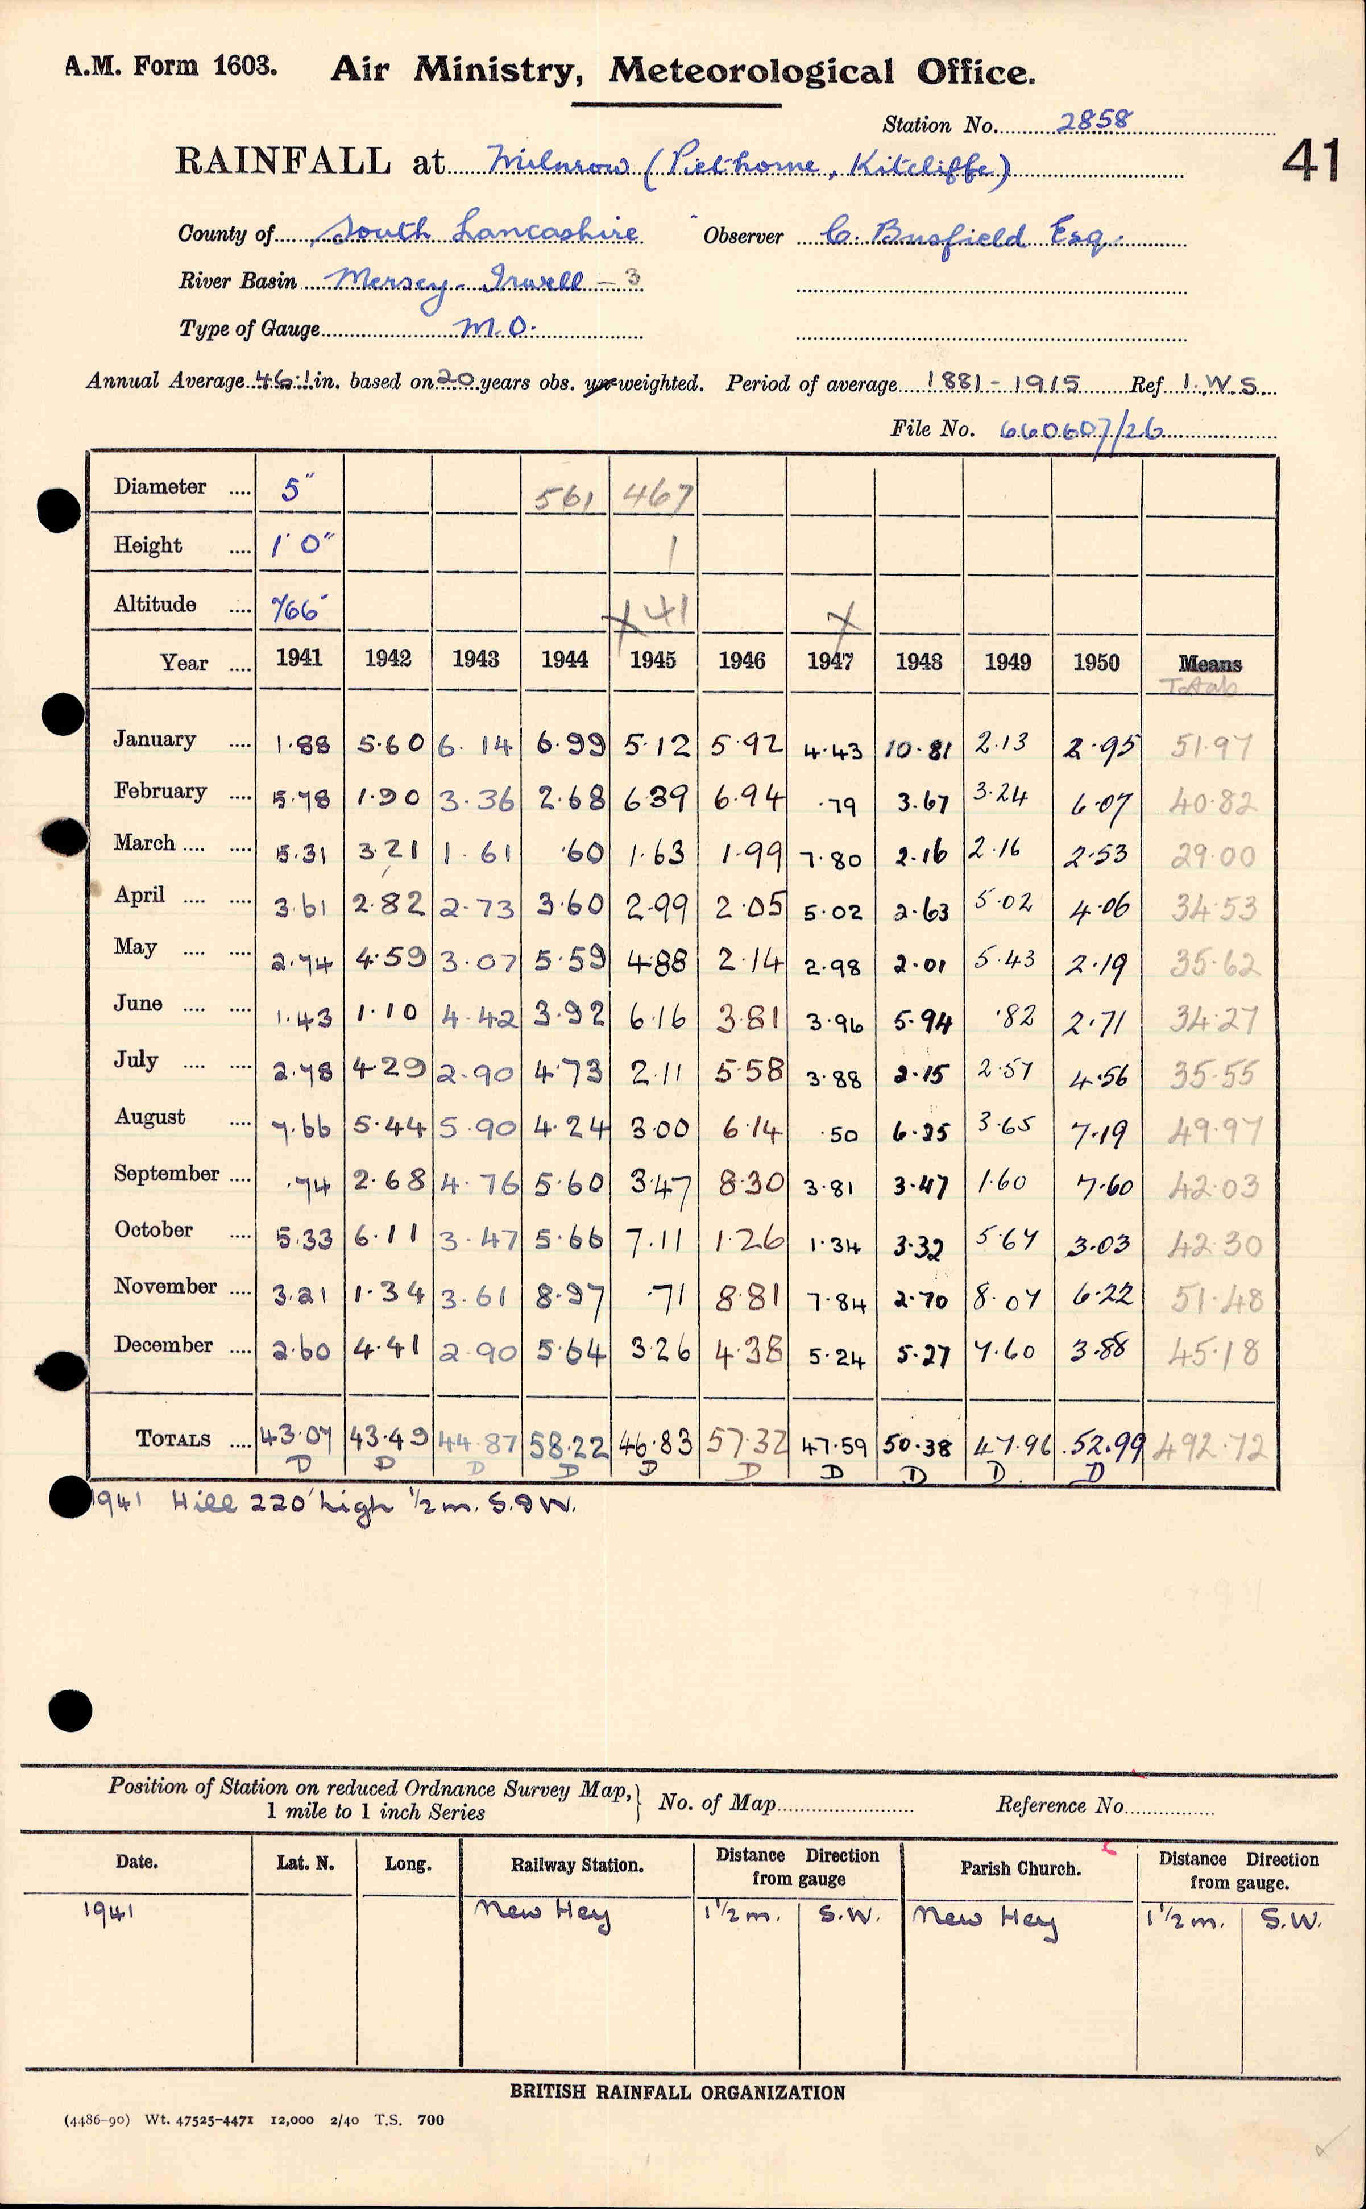 A.M. Form 1603. Air Ministry, Meteorological Office.
Station No. 2858
41
RAINFALL at Milnrow (Piethorne, Kitcliffe)
County of South Lancashire Observer C. Busfield Esq.
River Basin Mersey - Irwell - 3
Type of Gauge M.O.
Annual Average 46.1 in. based on 20 years obs. weighted. Period of average 1881-1915 Ref I.W.S.
File No. 660607/26
Diameter .... 5" 561 467
Height .... 1' 0" 1
Altitude .... 766' X 41 X
Year .... 1941 1942 1943 1944 1945 1946 1947 1948 1949 1950 Means
Totals
January .... 1.88 5.60 6.14 6.99 5.12 5.92 4.43 10.81 2.13 2.95 51.97
February .... 5.78 1.90 3.36 2.68 6.39 6.94 .79 3.67 3.24 6.07 40.82
March .... .... 5.31 3.21 1.61 .60 1.63 1.99 7.80 2.16 2.16 2.53 29.00
April .... .... 3.61 2.82 2.73 3.60 2.99 2.05 5.02 2.63 5.02 4.06 34.53
May .... .... 2.74 4.59 3.07 5.59 4.88 2.14 2.98 2.01 5.43 2.19 35.62
June .... .... 1.43 1.10 4.42 3.92 6.16 3.81 3.96 5.94 .82 2.71 34.27
July .... .... 2.78 4.29 2.90 4.73 2.11 5.58 3.88 2.15 2.57 4.56 35.55
August .... 7.66 5.44 5.90 4.24 3.00 6.14 .50 6.25 3.65 7.19 49.97
September .... .74 2.68 4.76 5.60 3.47 8.30 3.81 3.47 1.60 7.60 42.03
October .... 5.33 6.11 3.47 5.66 7.11 1.26 1.34 3.32 5.67 3.03 42.30
November .... 3.21 1.34 3.61 8.97 .71 8.81 7.84 2.70 8.07 6.22 51.48
December .... 2.60 4.41 2.90 5.64 3.26 4.38 5.24 5.27 7.60 3.88 45.18
TOTALS .... 43.07 43.49 44.87 58.22 46.83 57.32 47.59 50.38 47.96 52.99 492.72
D D D D D D D D D D
1941 Hill 220' high 1/2 m. S. & W.
Position of Station on reduced Ordnance Survey Map,
1 mile to 1 inch Series } No. of Map Reference No
Date. Lat. N. Long. Railway Station. Distance from gauge Direction Parish Church. Distance from gauge. Direction
1941 New Hey 1 1/2 m. S.W. New Hey 1 1/2 m. S.W.
BRITISH RAINFALL ORGANIZATION
(4486-90) Wt. 47525-4471 12,000 2/40 T.S. 700